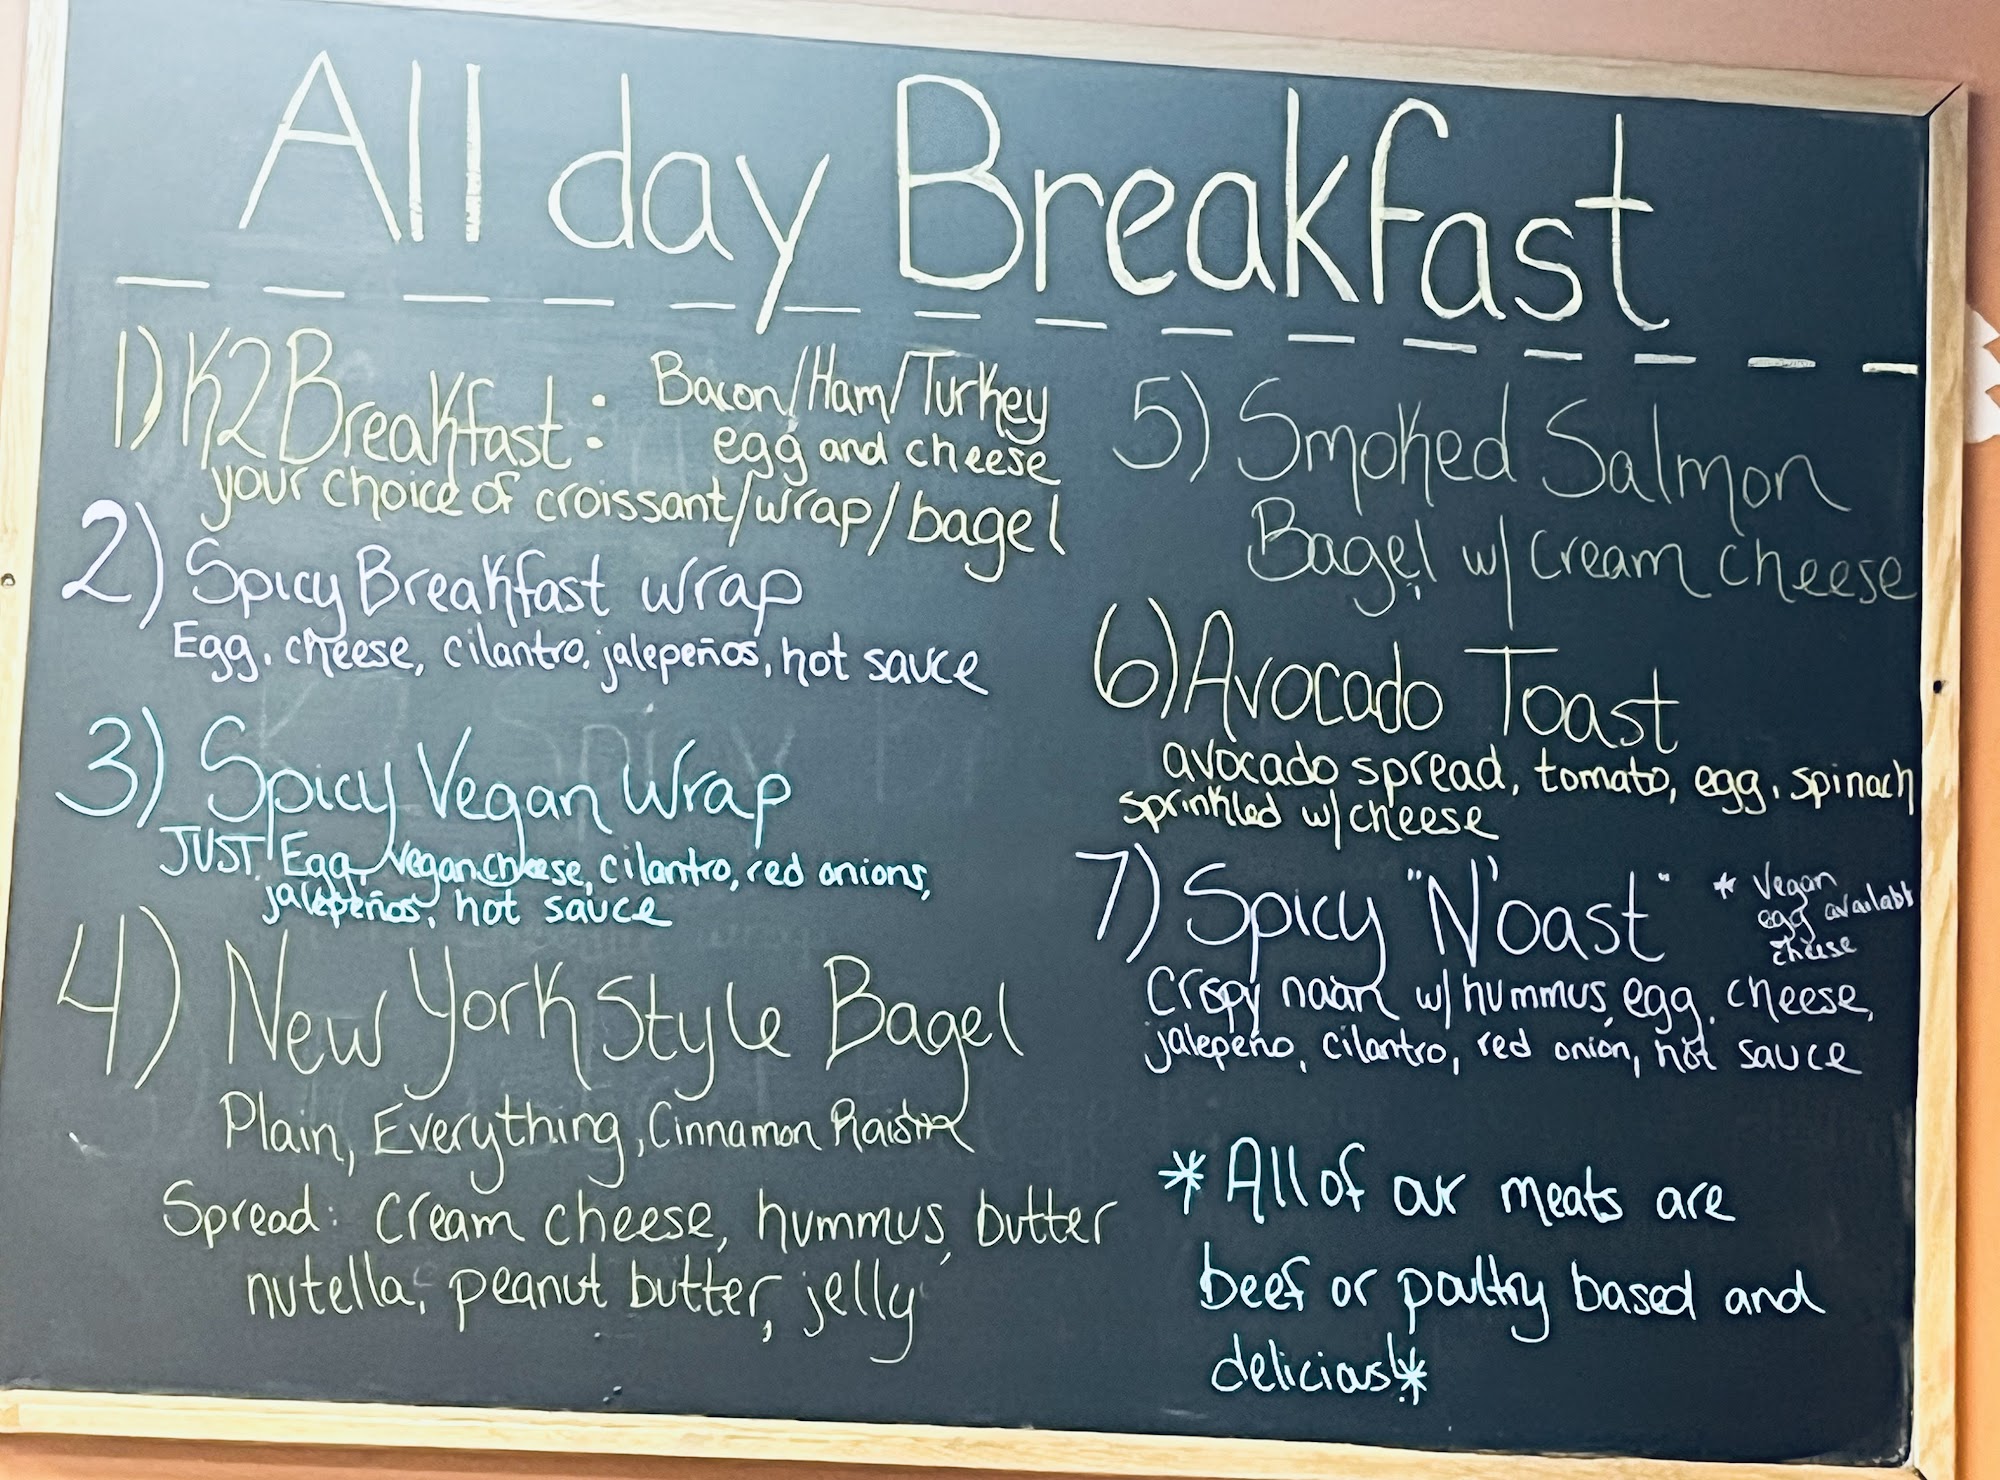 All day Breakfast
1) K2 Breakfast: Bacon/Ham/Turkey
egg and cheese
your choice of croissant/wrap/bagel
2) Spicy Breakfast wrap
Egg, cheese, cilantro, jalepeños, hot sauce
3) Spicy Vegan Wrap
JUST Egg, Vegan cheese, cilantro, red onions,
jalepeños, hot sauce
4) New York Style Bagel
Plain, Everything, Cinnamon Raisin
Spread: cream cheese, hummus, butter
nutella, peanut butter, jelly
5) Smoked Salmon
Bagel w/ cream cheese
6) Avocado Toast
avocado spread, tomato, egg, spinach
sprinkled w/ cheese
7) Spicy "N'oast"
* Vegan
egg available
cheese
Crispy naan w/ hummus, egg, cheese,
jalepeño, cilantro, red onion, hot sauce
*All of our meats are
beef or poultry based and
delicious!*